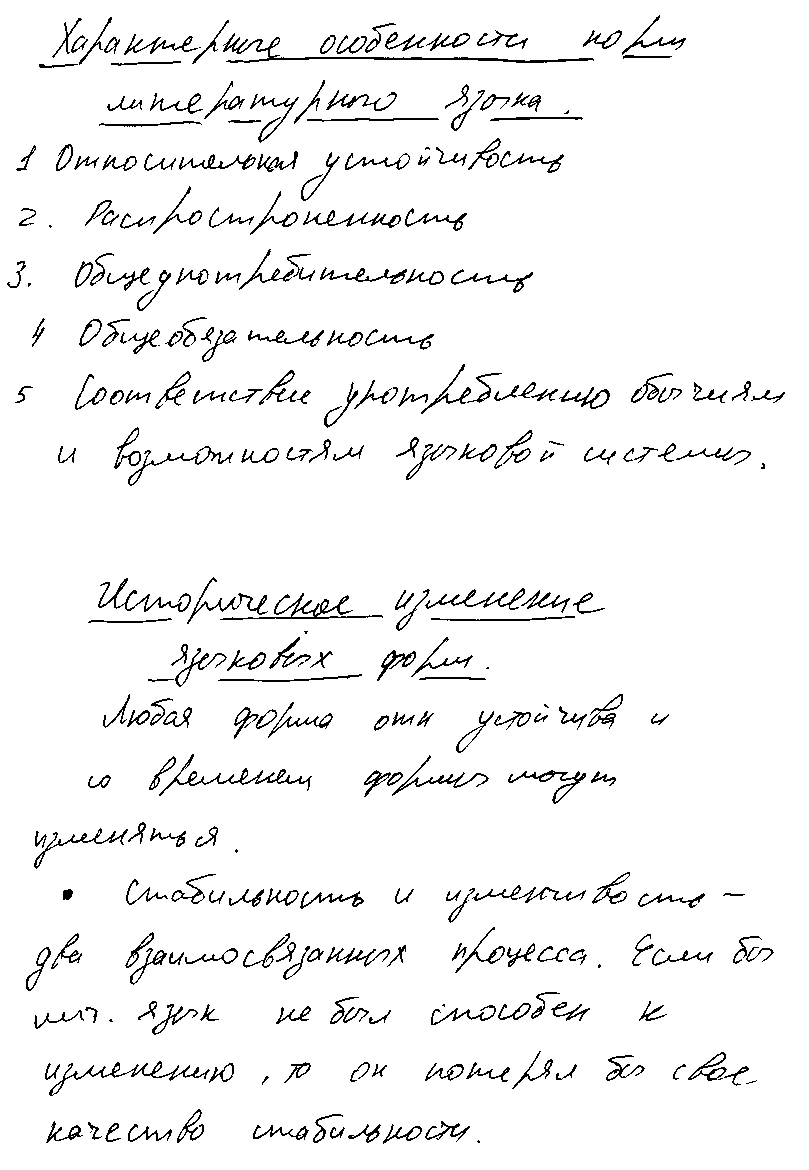 Характерные особенности норм
литературного языка.
1 Относительная устойчивость
2. Распространенность
3. Общеупотребительность
4 Общеобязательность
5 Соответствие употреблению обычиям
и возможностям языковой системы.
Историческое изменение
языковых форм.
Любая форма отн устойчива и
со временем формы могут
изменяться.
• Стабильность и изменчивость –
два взаимосвязанных процесса. Если бы
лит. язык не был способен к
изменению, то он потерял бы свое
качество стабильности.